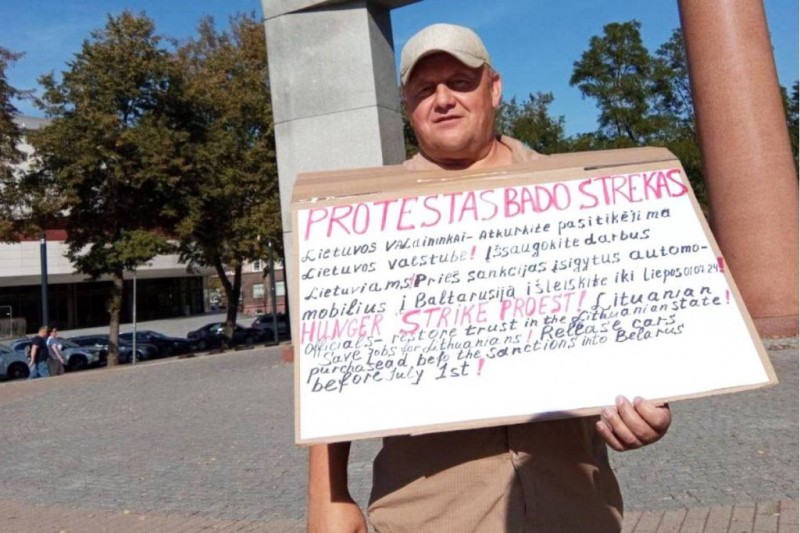 PROTESTAS BADO STREKAS
Lietuvos VALdininkai- Atkurkite pasitikėjima
Lietuvos valstube! Išsaugokite darbus
Lietuviams! Prieš sankcijas įsigytus automo-
mobilius į Baltarusiją išleiskite iki Liepos 01.07.24!
HUNGER STRIKE PROEST! Lituanian
Officials- restore trust in the Lithuanian state!
Save jobs for Lithuanians! Release cars
purchasead befo the sanctions into Belarus
before July 1st!